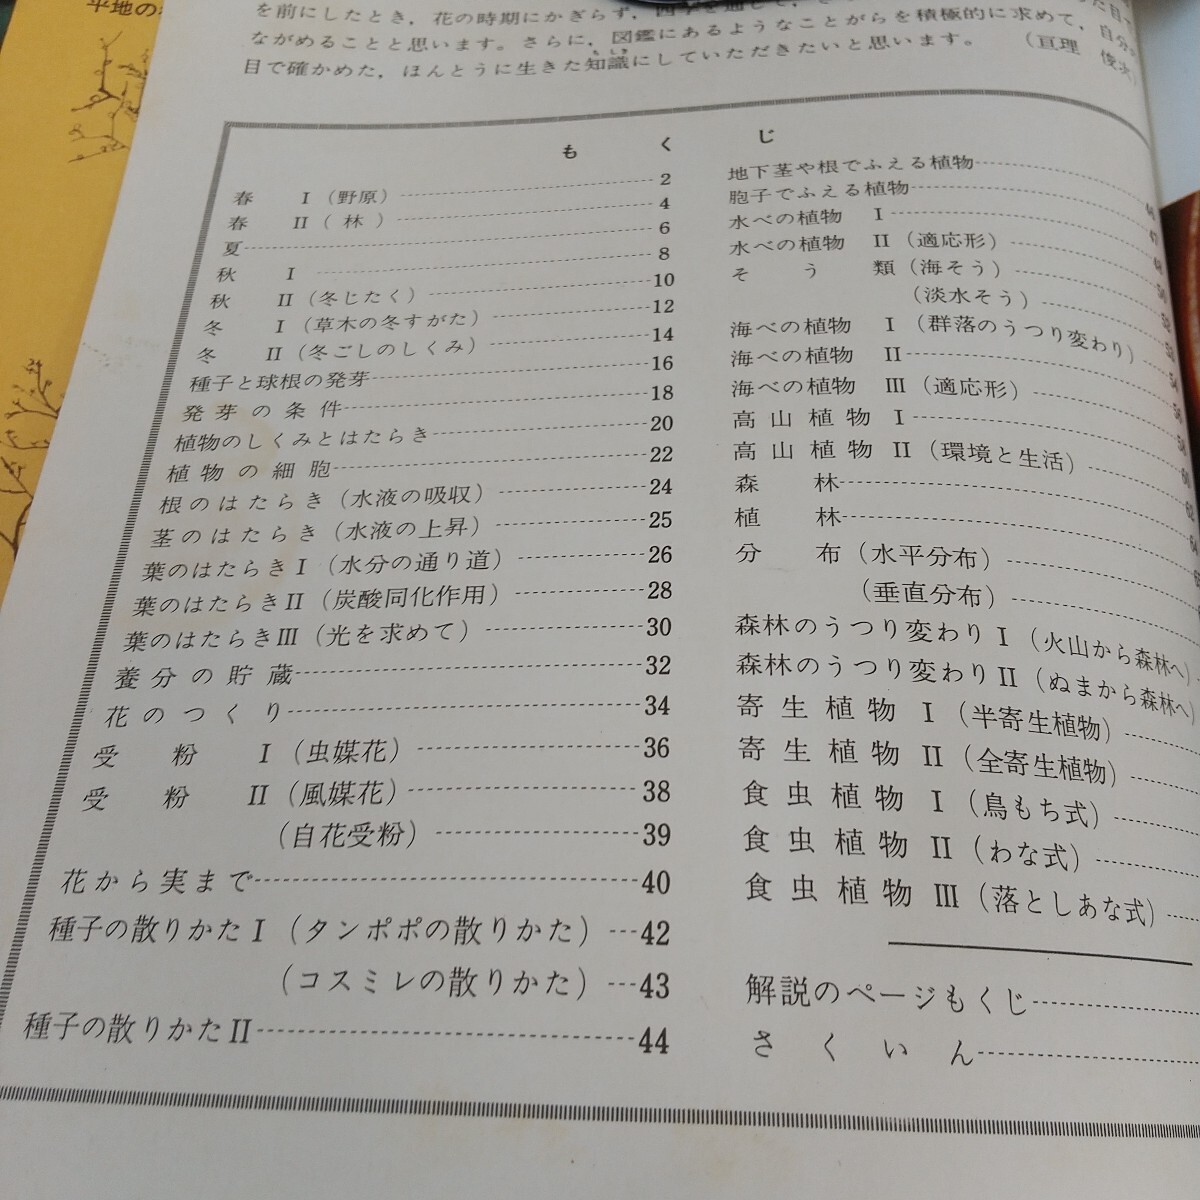 平地の
を前にしたとき，花の時期にかぎらず，四季を通じて，
ながめることと思います。さらに，図鑑にあるようなことがらを積極的に求めて，自分の
目で確かめた，ほんとうに生きた知識にしていただきたいと思います。 （亘理 俊次）
もくじ
春 Ⅰ（野原） 2
春 Ⅱ（林） 4
夏 6
秋 Ⅰ 8
秋 Ⅱ（冬じたく） 10
冬 Ⅰ（草木の冬すがた） 12
冬 Ⅱ（冬ごしのしくみ） 14
種子と球根の発芽 16
発芽の条件 18
植物のしくみとはたらき 20
植物の細胞 22
根のはたらき（水液の吸収） 24
茎のはたらき（水液の上昇） 25
葉のはたらきⅠ（水分の通り道） 26
葉のはたらきⅡ（炭酸同化作用） 28
葉のはたらきⅢ（光を求めて） 30
養分の貯蔵 32
花のつくり 34
受粉 Ⅰ（虫媒花） 36
受粉 Ⅱ（風媒花） 38
（自花受粉） 39
花から実まで 40
種子の散りかたⅠ（タンポポの散りかた） 42
（コスミレの散りかた） 43
種子の散りかたⅡ 44
地下茎や根でふえる植物 46
胞子でふえる植物 47
水べの植物 Ⅰ 48
水べの植物 Ⅱ（適応形） 50
そう類（海そう） 52
（淡水そう） 53
海べの植物 Ⅰ（群落のうつり変わり） 54
海べの植物 Ⅱ 56
海べの植物 Ⅲ（適応形） 58
高山植物 Ⅰ 60
高山植物 Ⅱ（環境と生活） 62
森林 64
植林
分布（水平分布）
（垂直分布）
森林のうつり変わりⅠ（火山から森林へ）
森林のうつり変わりⅡ（ぬまから森林へ）
寄生植物 Ⅰ（半寄生植物）
寄生植物 Ⅱ（全寄生植物）
食虫植物 Ⅰ（鳥もち式）
食虫植物 Ⅱ（わな式）
食虫植物 Ⅲ（落としあな式）
解説のページもくじ
さくいん